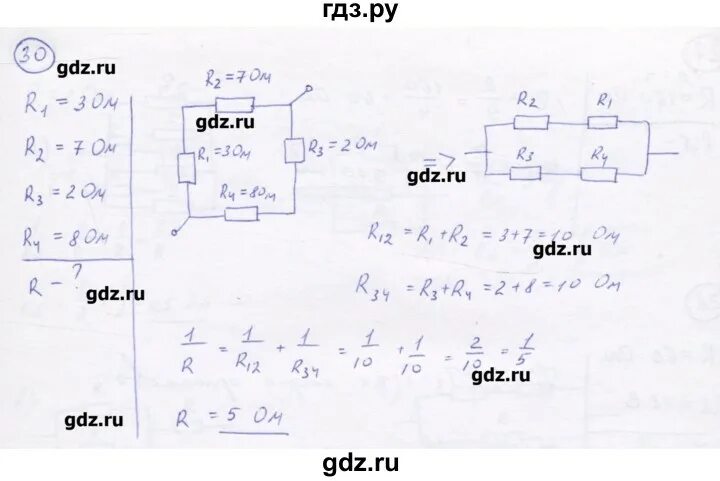 гдз.ру
30
gdz.ru
R₁ = 3 Ом
R₂ = 7 Ом
R₃ = 2 Ом
R₄ = 8 Ом
R - ?
gdz.ru
gdz.ru
R₂ = 7 Ом
gdz.ru
R₁ = 3 Ом
R₃ = 2 Ом
R₄ = 8 Ом
=>
gdz.ru
R₂ R₁
R₃ R₄
R₁₂ = R₁ + R₂ = 3 + 7 = 10 Ом
gdz.ru
R₃₄ = R₃ + R₄ = 2 + 8 = 10 Ом
1/R = 1/R₁₂ + 1/R₃₄ = 1/10 + 1/10 = 2/10 = 1/5
gdz.ru
R = 5 Ом
gdz.ru